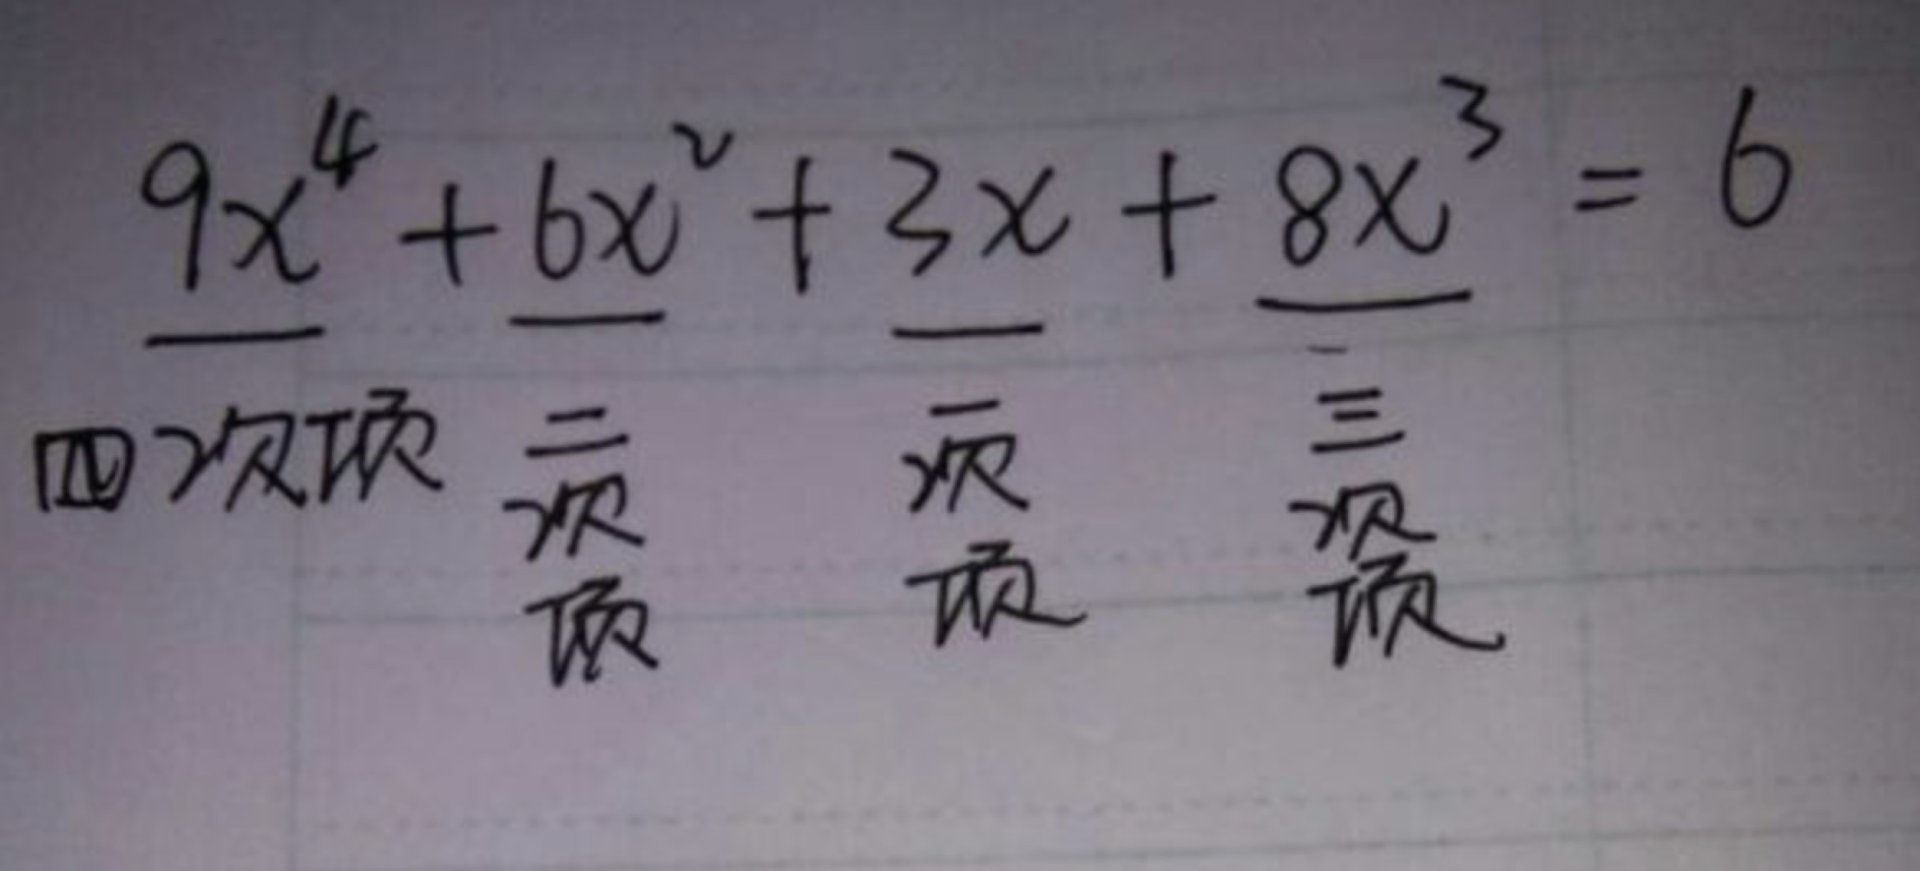 9x⁴ + 6x² + 3x + 8x³ = 6
四次项 二次项 一次项 三次项